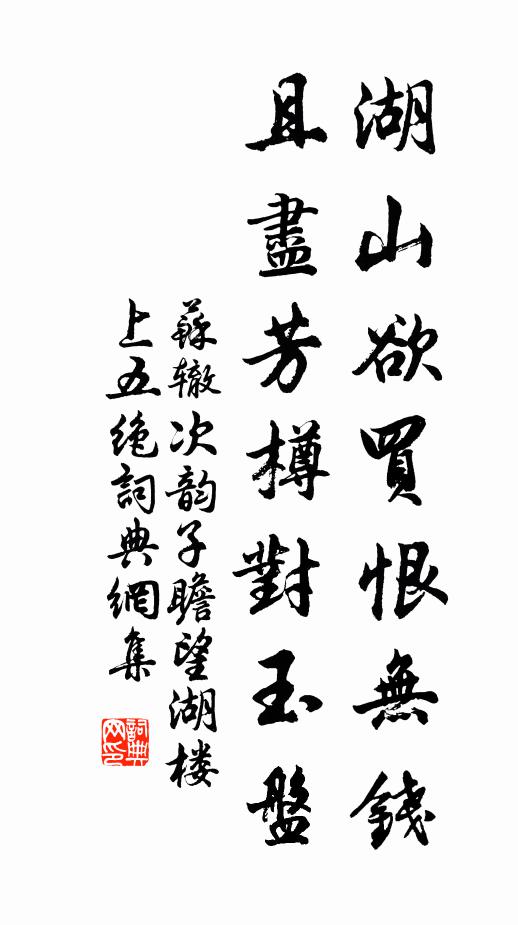 湖山欲買恨無錢
且盡芳樽對玉盤
蘇辙次韵子瞻望湖楼
上五绝詞典網集
詞典
网印